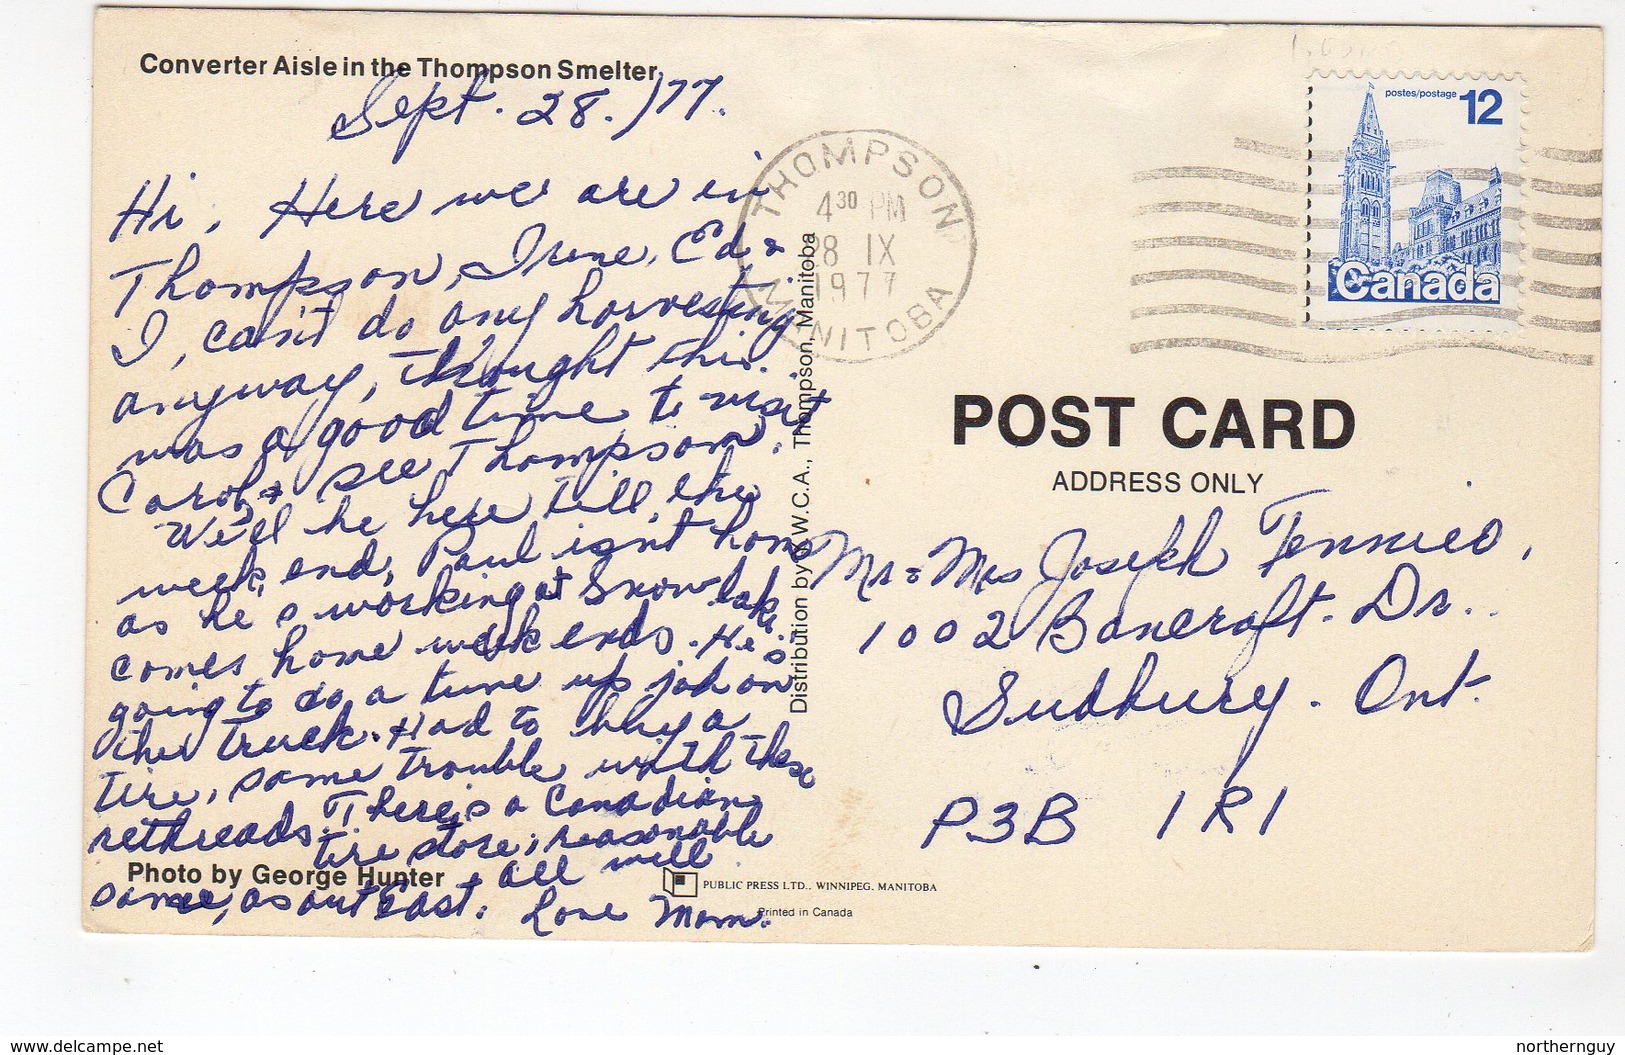 Converter Aisle in the Thompson Smelter
Sept. 28. /77.
Hi, Here we are in
Thompson, Irene, Ed &
I, can't do any harvesting
anyway, thought this
was a good time to visit
Carol, & see Thompson.
We'll be here till, the
week, end, Paul isn't home
as he's working at Snow lake
comes home week ends. He's
going to do a tune up job on
the truck. Had to buy a
tire, some trouble with these
rethreads. There's a Canadian
tire store, reasonable
Photo by George Hunter
all well
same, as out East. Love Mom.
Distribution by W.C.A., Thompson, Manitoba
PUBLIC PRESS LTD., WINNIPEG, MANITOBA
Printed in Canada
THOMPSON
4 30 PM
28 IX
1977
MANITOBA
postes/postage 12
Canada
POST CARD
ADDRESS ONLY
Mr & Mrs Joseph
1002 Bancroft. Dr.
Sudbury. Ont.
P3B 1R1
www.delcampe.net
northernguy